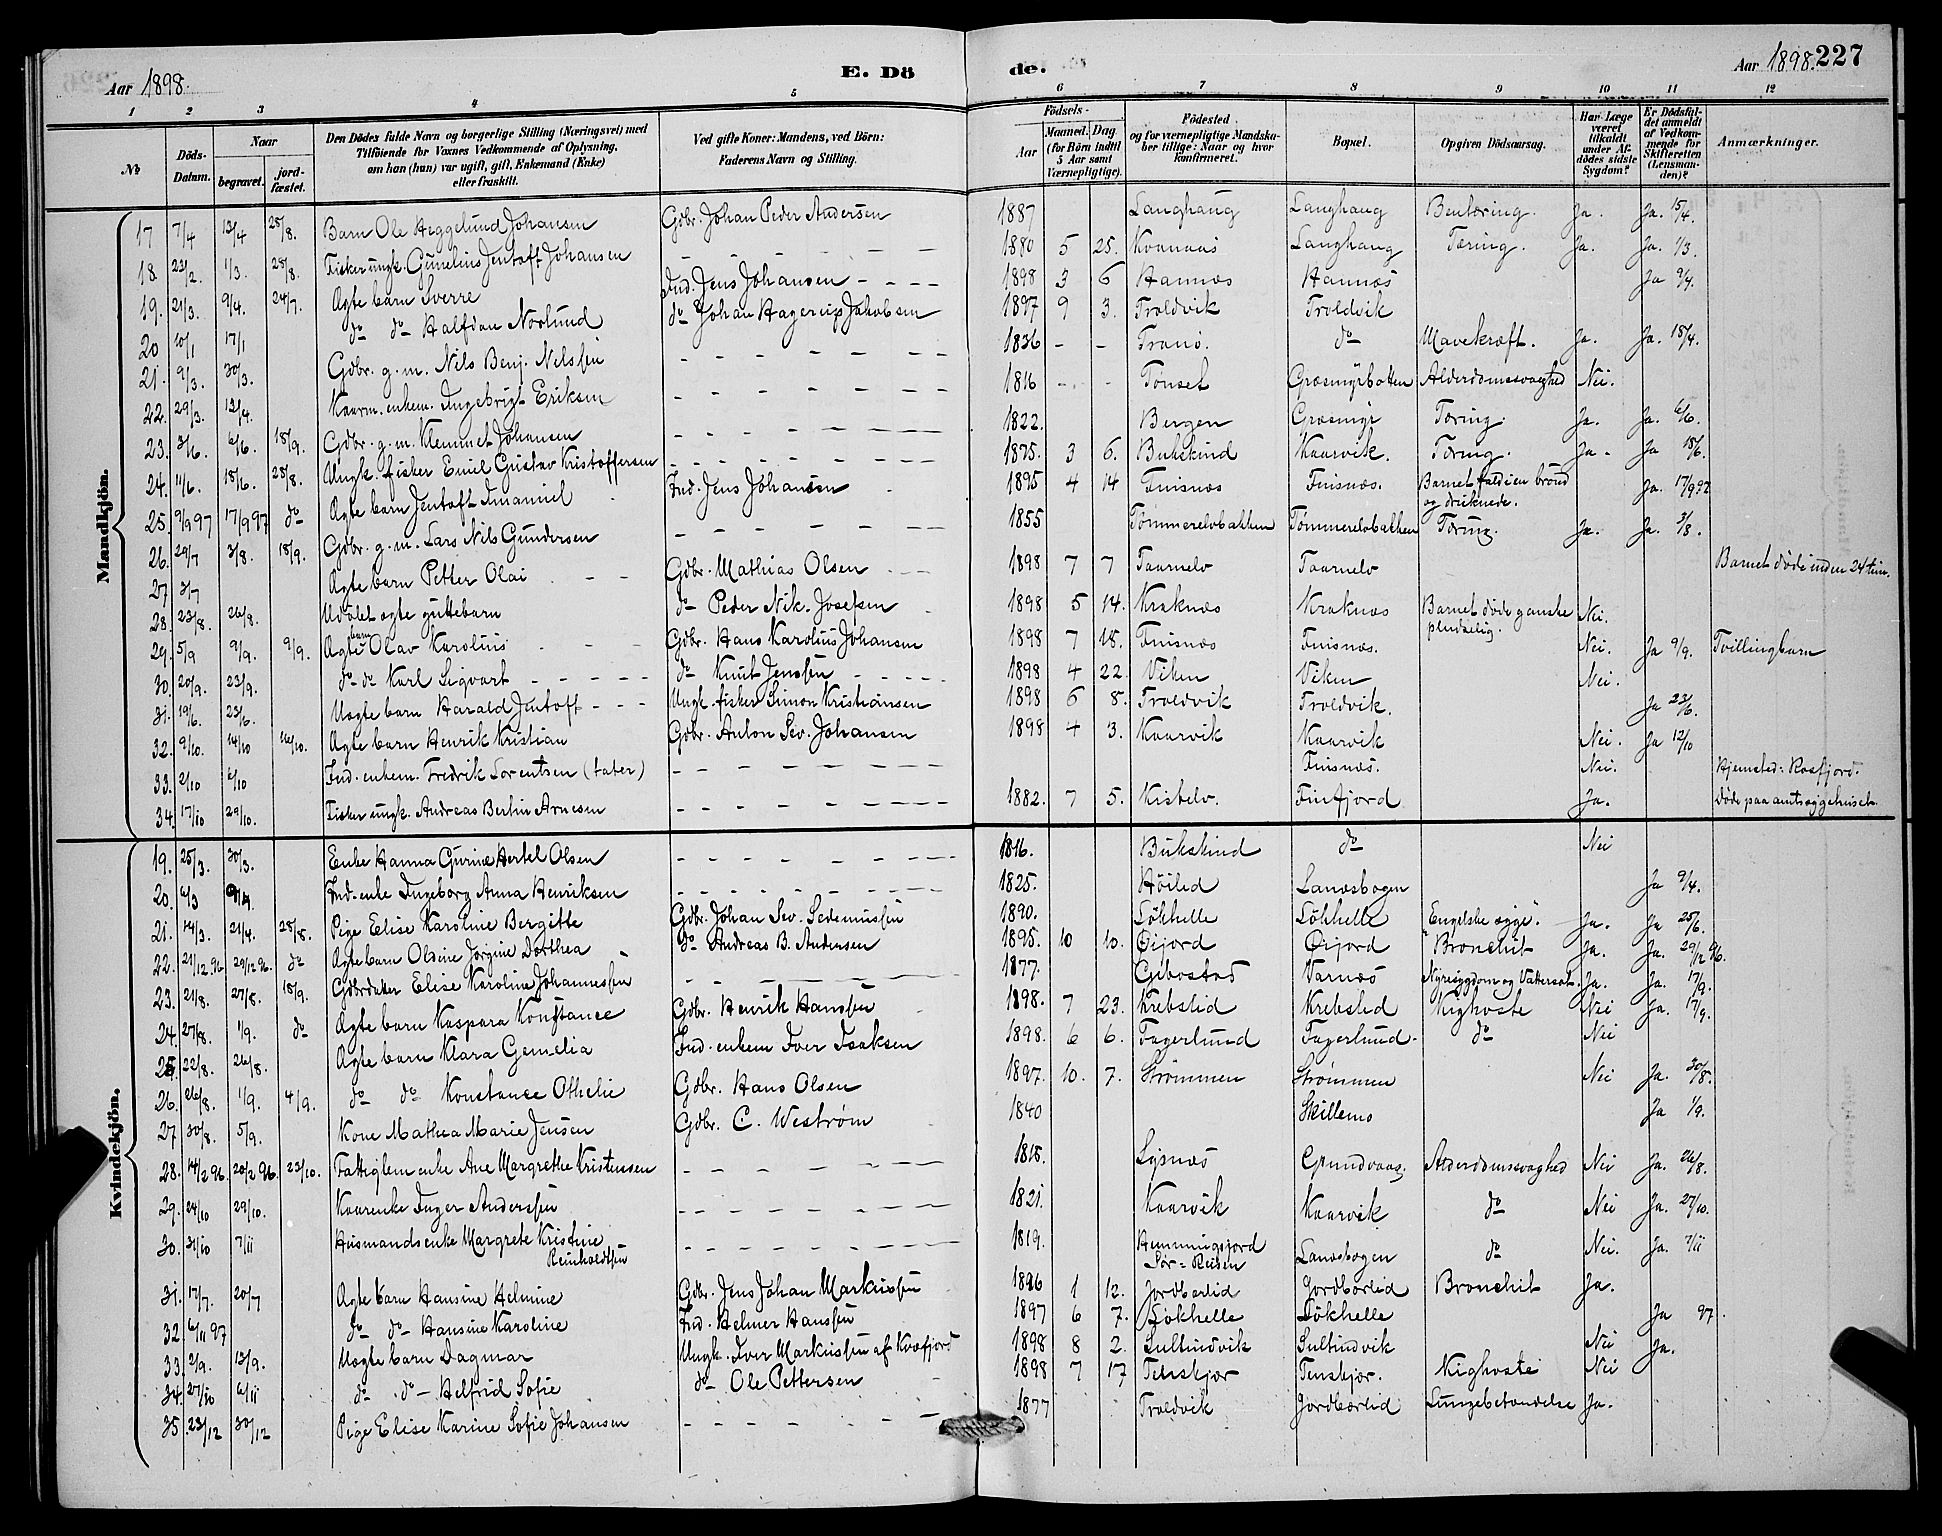 Aar 1898.
E. Dö
de.
Aar 1898.
227
1 2 3 4 5 6 7 8 9 10 11 12
№
Döds-Datum.
Naar
begravet.
jord-fæstet.
Den Dödes fulde Navn og borgerlige Stilling (Næringsvei) med
Tilföiende for Voxnes Vedkommende af Oplysning,
om han (hun) var ugift, gift, Enkemand (Enke)
eller fraskilt.
Ved gifte Koner: Mandens, ved Börn:
Faderens Navn og Stilling.
Födsels-
Aar
Maaned. Dag
(for Börn indtil
5 Aar samt
Værnepligtige).
Födested
og for værnepligtige Mandska-
ber tillige: Naar og hvor
konfirmeret.
Bopæl.
Opgiven Dödsaarsag.
Har Læge
været
tilkaldt
under Af-
dödes sidste
Sygdom?
Er Dödsfal-
det anmeldt
af Vedkom-
mende for
Skifteretten
(Lensman-
den)?
Anmærkninger.
Mandkjön.
17 7/4 13/4 28/8. Barn Ole Heggelund Johansen Gdbr. Johan Peder Andersen 1887 Langhaug Langhaug Bentæring. Ja. Ja. 15/4.
18. 22/2. 1/3. 28/8. Fisker ungk. Gunelius Jentoft Johansen 1880 5 25. Kvanaas Langhaug Tæring. Ja. Ja. 1/3.
19. 21/3. 9/4. 24/7. Ægte barn Sverre Ind. Jens Johansen 1898 3 6 Hannæs Hannæs Ja 9/4.
20 10/1 17/1 do do Halfdan Norlund do Johan Hagerup Jakobsen 1897 9 3. Troldvik Troldvik
21. 9/3. 30/3. Gdbr. g. m. Nils Benj. Nilssen 1836 - - Tranø. do Mavekræft. Ja. Ja. 18/4.
22. 29/3. 13/4. Kaarm. enkem. Ingebrigt Eriksen 1816 - - Tønset Græsmyrbotten Alderdomssvaghed Nei.
23. 3/6. 6/6. 18/9. Gdbr. g. m. Klemmet Johansen 1822. Bergen Græsmyr Tæring. Ja. Ja. 6/6.
24. 11/6. 18/6. 28/8. Ungk. fisker Emil Gustav Kristoffersen 1875. 3 6. Bukskind Kaarvik. Tæring. Ja. Ja 18/6.
25. 9/9 97 17/9 97 do Ægte barn Jentoft Imanuel Ind. Jens Johansen 1895 4 14 Finsnæs Finsnæs. Barnet faldt i en brønd
og druknede. Ja. 17/9 97
26. 29/7 3/8. 18/9. Gdbr. g. m. Lars Nils Gundersen 1855 Tømmerelvbakken Tømmerelvbakken Tæring. Ja. Ja. 3/8.
27 3/7 Ægte barn Petter Olai Gdbr. Mathias Olsen 1898 7 7 Taarnelv Taarnelv Barnet døde inden 24 tim.
28. 23/8. 26/8. Udøbt ægte guttebarn do Peder Nik. Josefsen 1898 5 14. Kraknæs Kraknæs Barnet døde ganske
pludselig. Nei.
29. 5/9 9/9. 9/9. Ægte barn Olav Karolius Gdbr. Hans Karolius Johansen 1898 7 18. Finsnæs Finsnæs. Nei. Ja 9/9. Tvillingbarn
30. 20/9. 23/9. do do Karl Sigvart do Knut Jenssen 1898 4 22. Viken Viken Nei.
31. 19/6. 23/6. Uægte barn Harald Jentoft Ungk. fisker Simon Kristiansen 1898 6 8. Troldvik Troldvik. Ja 23/6.
32. 9/10. 14/10 16/10. Ægte barn Henrik Kristian Gdbr. Anton Sev. Johansen 1898 4 3. Kaarvik Kaarvik Nei. Ja 12/10
33. 2/10 6/10 Ind. enkem. Fredrik Lorentsen (tater) Finsnæs. Nei. Hjemsted: Rosfjord.
34. 17/10 29/10. Fisker ungk. Andreas Bertin Arnesen 1882. 7 5. Kistelv. Finfjord Ja. Døde paa amtssygehuset.
Kvindekjön.
19. 25/3. 30/3. Enke Hanna Gurine Hertel Olsen 1816. Bukskind do Nei
20. 6/3 9/4 Ind-enke Ingeborg Anna Henriksen 1825. Høiled Lanesbogen Ja 9/4.
21. 14/3. 21/4. 28/8. Pige Elise Karoline Bergitte Gdbr. Johan Sev. Sedemussen 1890. Løkhelle Løkhelle "Engelske syge". Ja. Ja 25/6.
22. 21/12.96 29/12 96. do Ægte barn Olsine Jørgine Dorthea do Andreas B. Andersen 1895. 10 10. Øijord Øijord Bronchit Ja. Ja. 29/12 96.
23. 21/8. 27/8. 18/9. Gdbrdatter Elise Karoline Johannessen 1877. Gibostad Varnæs Nyresygdom og Vattersot. Ja. Ja. 17/9.
24. 27/8. 1/9. do Ægte barn Kaspara Konstance Gdbr. Henrik Hanssen 1898. 7 23. Krebslid Krebslid Kighoste Nei Ja. 17/9.
25. 22/8. 26/8. Ægte barn Klara Gemelia Ind. enkem Iver Isaksen 1898. 6 6. Fagerlund Fagerlund. do Nei
26. 26/8. 1/9. 4/9. do do Konstance Othelie Gdbr. Hans Olsen 1897. 10. 7. Strømmen Strømmen Nei Ja. 30/8.
27 30/8. 5/9. Kone Mathea Marie Jensen Gdbr. C. Westrøm 1840 Skillemo Ja 1/9.
28. 14/2 96. 20/2 96. 23/10. Fattiglem enke Ane Margrethe Kristensen 1818. Lysnæs Grundvaag. Alderdomssvaghed Nei Ja. 26/8.
29. 24/10 29/10. Kaarenke Inger Anderssen 1821. Kaarvik Kaarvik do Nei Ja. 27/10.
30. 31/10 7/11 Husmandsenke Margrete Kristine
Reinholdtsen 1819. Hemmingsjord
Sør-Reisen Lanesbogen do Nei. Ja. 7/11
31. 17/7. 20/7 Ægte barn Hansine Helmine Gdbr. Jens Johan Markussen 1896 1 12. Jordbærlid Jordbærlid Bronchit Ja.
32. 6/11 97 do do Hansine Karoline Ind. Helmer Hanssen 1897 6 7. Løkhelle Løkhelle Ja 97.
33. 2/9. 13/9. Uægte barn Dagmar Ungk. Iver Markussen af Kvæfjord 1898 8 2. Sultindvik Sultindvik Nei Ja.
34. 27/10 6/11 do do Helfrid Sofie do Ole Pettersen 1898 7 17 Tenskjær Tenskjær. Kighoste Nei
35. 23/12 30/12 Pige Elise Karine Sofie Johansen 1877 Troldvik Jordbærlid Lungebetændelse Ja.